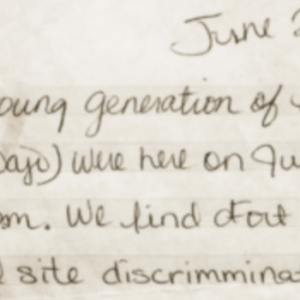 June 2
oung generation of
Days) were here on Ju
om. We find out
site discrimmina